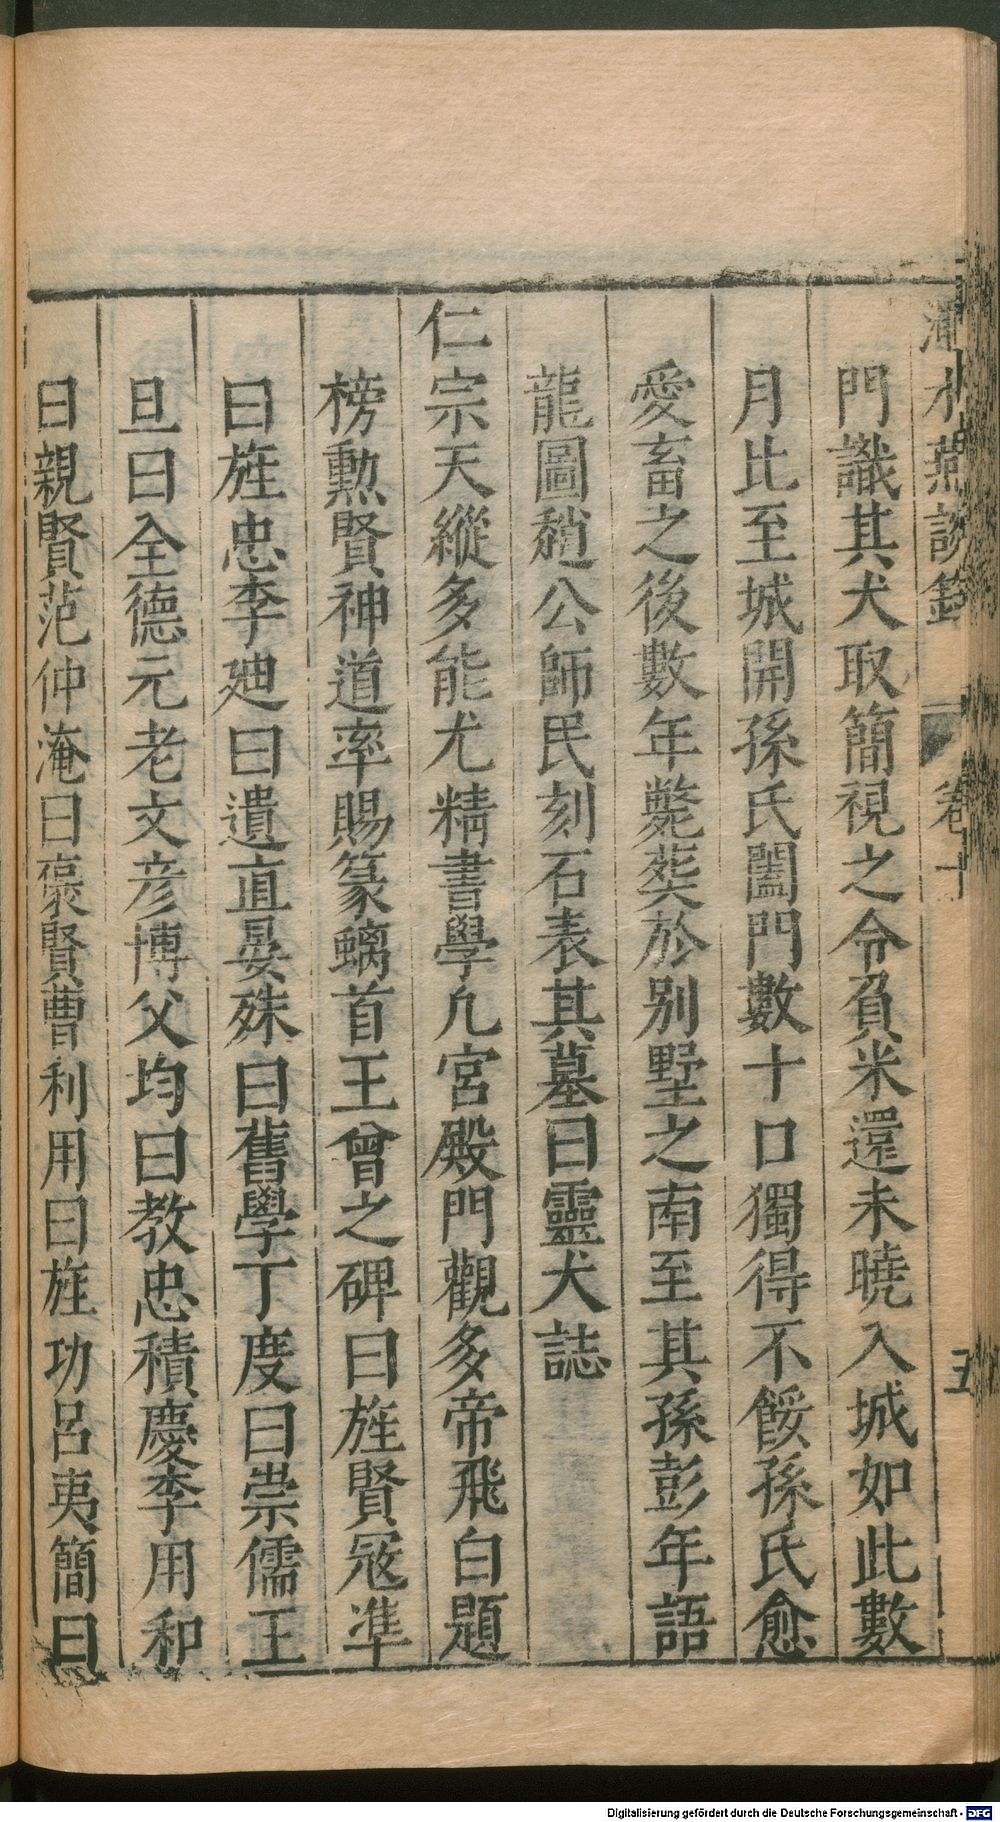 澠水燕談錄 卷十 五
門識其犬取簡視之令負米還未曉入城如此數
月比至城開孫氏闔門數十口獨得不餒孫氏愈
愛畜之後數年斃葬於別墅之南至其孫彭年語
龍圖趙公師民刻石表其墓曰靈犬誌
仁宗天縱多能尤精書學凡宮殿門觀多帝飛白題
榜勲賢神道率賜篆螭首王曾之碑曰旌賢冦凖
曰旌忠李廸曰遺直晏殊曰舊學丁度曰崇儒王
旦曰全德元老文彦博父均曰教忠積慶李用和
曰親賢范仲淹曰褒賢曹利用曰旌功呂夷簡曰
Digitalisierung gefördert durch die Deutsche Forschungsgemeinschaft - DFG